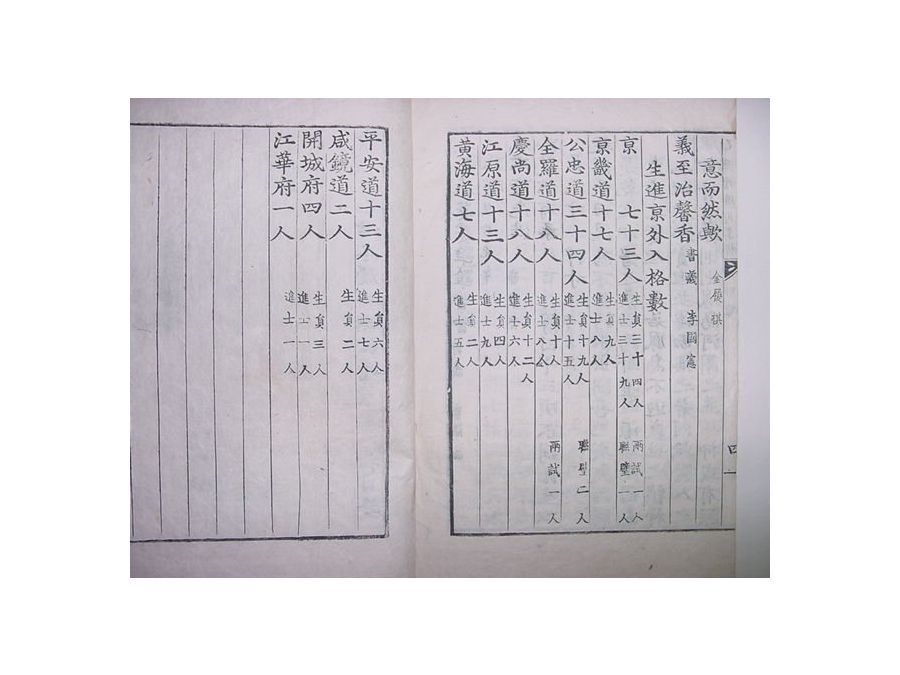 意而然歟 金履祺
義至治馨香 書義 李國憲
生進京外入格數
京 七十三人 生員三十四人 兩試一人
進士三十九人 聯璧一人
京畿道十七人 生員九人
進士八人
公忠道三十四人 生員十九人 聯璧二人
進士十五人
全羅道十八人 生員十人 兩試一人
進士八人
慶尚道十八人 生員十二人
進士六人
江原道十三人 生員四人
進士九人
黃海道七人 生員二人
進士五人
平安道十三人 生員六人
進士七人
咸鏡道二人 生員二人
開城府四人 生員三人
進士一人
江華府一人 進士一人
四